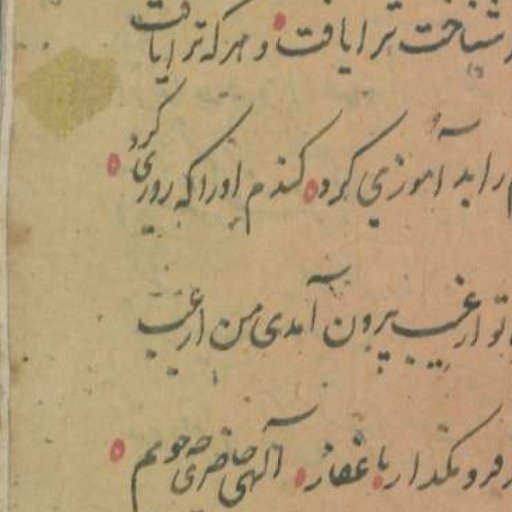 شناخت ترا یافت و هر که ترا یافت
را بد آموزی کرد گندم او را که روزی کرد
تو از غیب بیرون آمدی من از غیب
فرو مگذار یا غفار الهی حاضری چه جویم